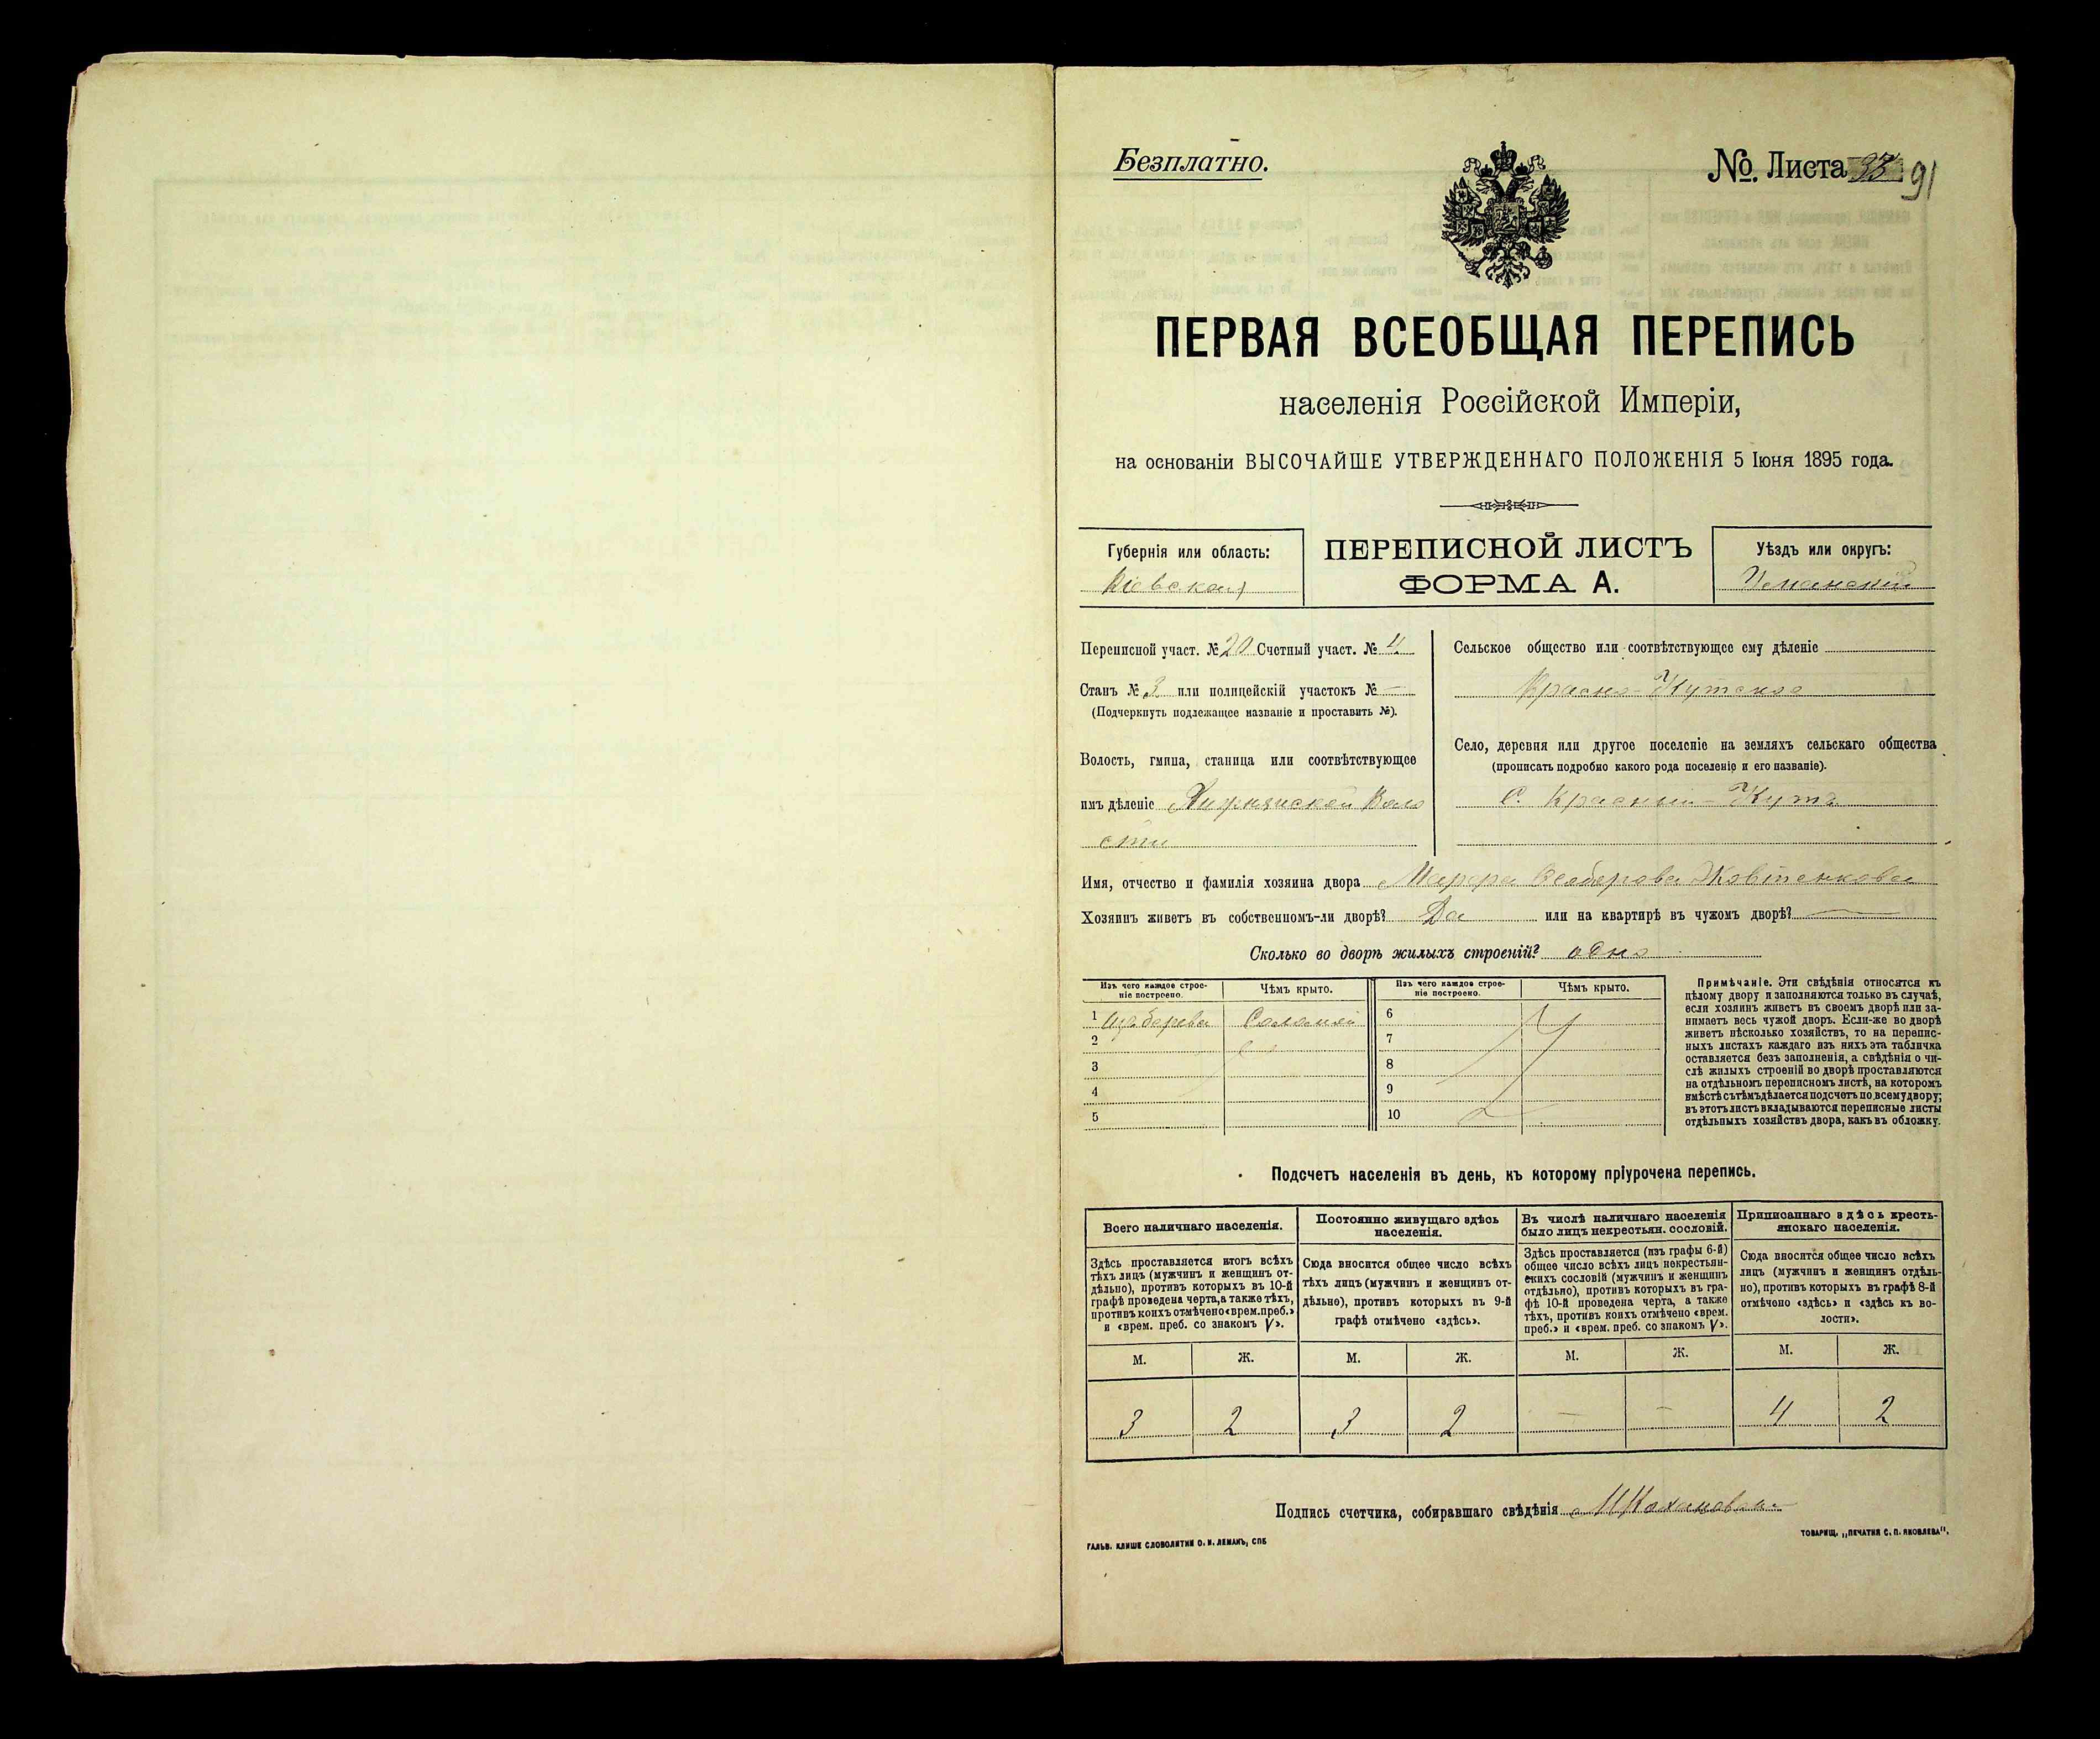 Безплатно.
№. Листа 33 91
ПЕРВАЯ ВСЕОБЩАЯ ПЕРЕПИСЬ
населенія Россійской Имперіи,
на основаніи ВЫСОЧАЙШЕ УТВЕРЖДЕННАГО ПОЛОЖЕНІЯ 5 Іюня 1895 года.
Губернія или область:
Кіевская
ПЕРЕПИСНОЙ ЛИСТЪ
ФОРМА А.
Уѣздъ или округъ:
Уманскій
Переписной участ. № 20 Счетный участ. № 4
Станъ № 3 или полицейскій участокъ № —
(Подчеркнуть подлежащее названіе и проставить №).
Волость, гмина, станица или соотвѣтствующее
имъ дѣленіе Воло
сти
Сельское общество или соотвѣтствующее ему дѣленіе
Красно-Кутское
Село, деревня или другое поселеніе на земляхъ сельскаго общества
(прописать подробно какого рода поселеніе и его названіе).
С. Красный-Кутъ
Имя, отчество и фамилія хозяина двора
Хозяинъ живетъ въ собственномъ-ли дворѣ? Да или на квартирѣ въ чужомъ дворѣ? —
Сколько во дворѣ жилыхъ строеній? одно
Изъ чего каждое строе-
ніе построено.
Чѣмъ крыто.
Изъ чего каждое строе-
ніе построено.
Чѣмъ крыто.
1 изъ дерева Соломой 6
2 7
3 8
4 9
5 10
Примѣчаніе. Эти свѣдѣнія относятся къ
цѣлому двору и заполняются только въ случаѣ,
если хозяинъ живетъ въ своемъ дворѣ или за-
нимаетъ весь чужой дворъ. Если-же во дворѣ
живетъ нѣсколько хозяйствъ, то на перепис-
ныхъ листахъ каждаго изъ нихъ эта табличка
оставляется безъ заполненія, а свѣдѣнія о чи-
слѣ жилыхъ строеній во дворѣ проставляются
на отдѣльномъ переписномъ листѣ, на которомъ
вмѣстѣ съ тѣмъ дѣлается подсчетъ по всему двору;
въ этотъ листъ вкладываются переписные листы
отдѣльныхъ хозяйствъ двора, какъ въ обложку.
Подсчетъ населенія въ день, къ которому пріурочена перепись.
Всего наличнаго населенія.
Здѣсь проставляется итогъ всѣхъ
тѣхъ лицъ (мужчинъ и женщинъ от-
дѣльно), противъ которыхъ въ 10-й
графѣ проведена черта, а также тѣхъ,
противъ коихъ отмѣчено «врем. преб.»
и «врем. преб. со знакомъ V».
Постоянно живущаго здѣсь
населенія.
Сюда вносится общее число всѣхъ
тѣхъ лицъ (мужчинъ и женщинъ от-
дѣльно), противъ которыхъ въ 9-й
графѣ отмѣчено «здѣсь».
Въ числѣ наличнаго населенія
было лицъ некрестьян. сословій.
Здѣсь проставляется (изъ графы 6-й)
общее число всѣхъ лицъ некрестьян-
скихъ сословій (мужчинъ и женщинъ
отдѣльно), противъ которыхъ въ гра-
фѣ 10-й проведена черта, а также
тѣхъ, противъ коихъ отмѣчено «врем.
преб.» и «врем. преб. со знакомъ V».
Приписаннаго здѣсь кресть-
янскаго населенія.
Сюда вносится общее число всѣхъ
лицъ (мужчинъ и женщинъ отдѣль-
но), противъ которыхъ въ графѣ 8-й
отмѣчено «здѣсь» и «здѣсь къ во-
лости».
М. Ж. М. Ж. М. Ж. М. Ж.
3 2 3 2 — — 4 2
Подпись счетчика, собиравшаго свѣдѣнія
ГАЛЬВ. КЛИШЕ СЛОВОЛИТНИ О. И. ЛЕМАНЪ, СПБ
ТОВАРИЩ. „ПЕЧАТНЯ С. П. ЯКОВЛЕВА".